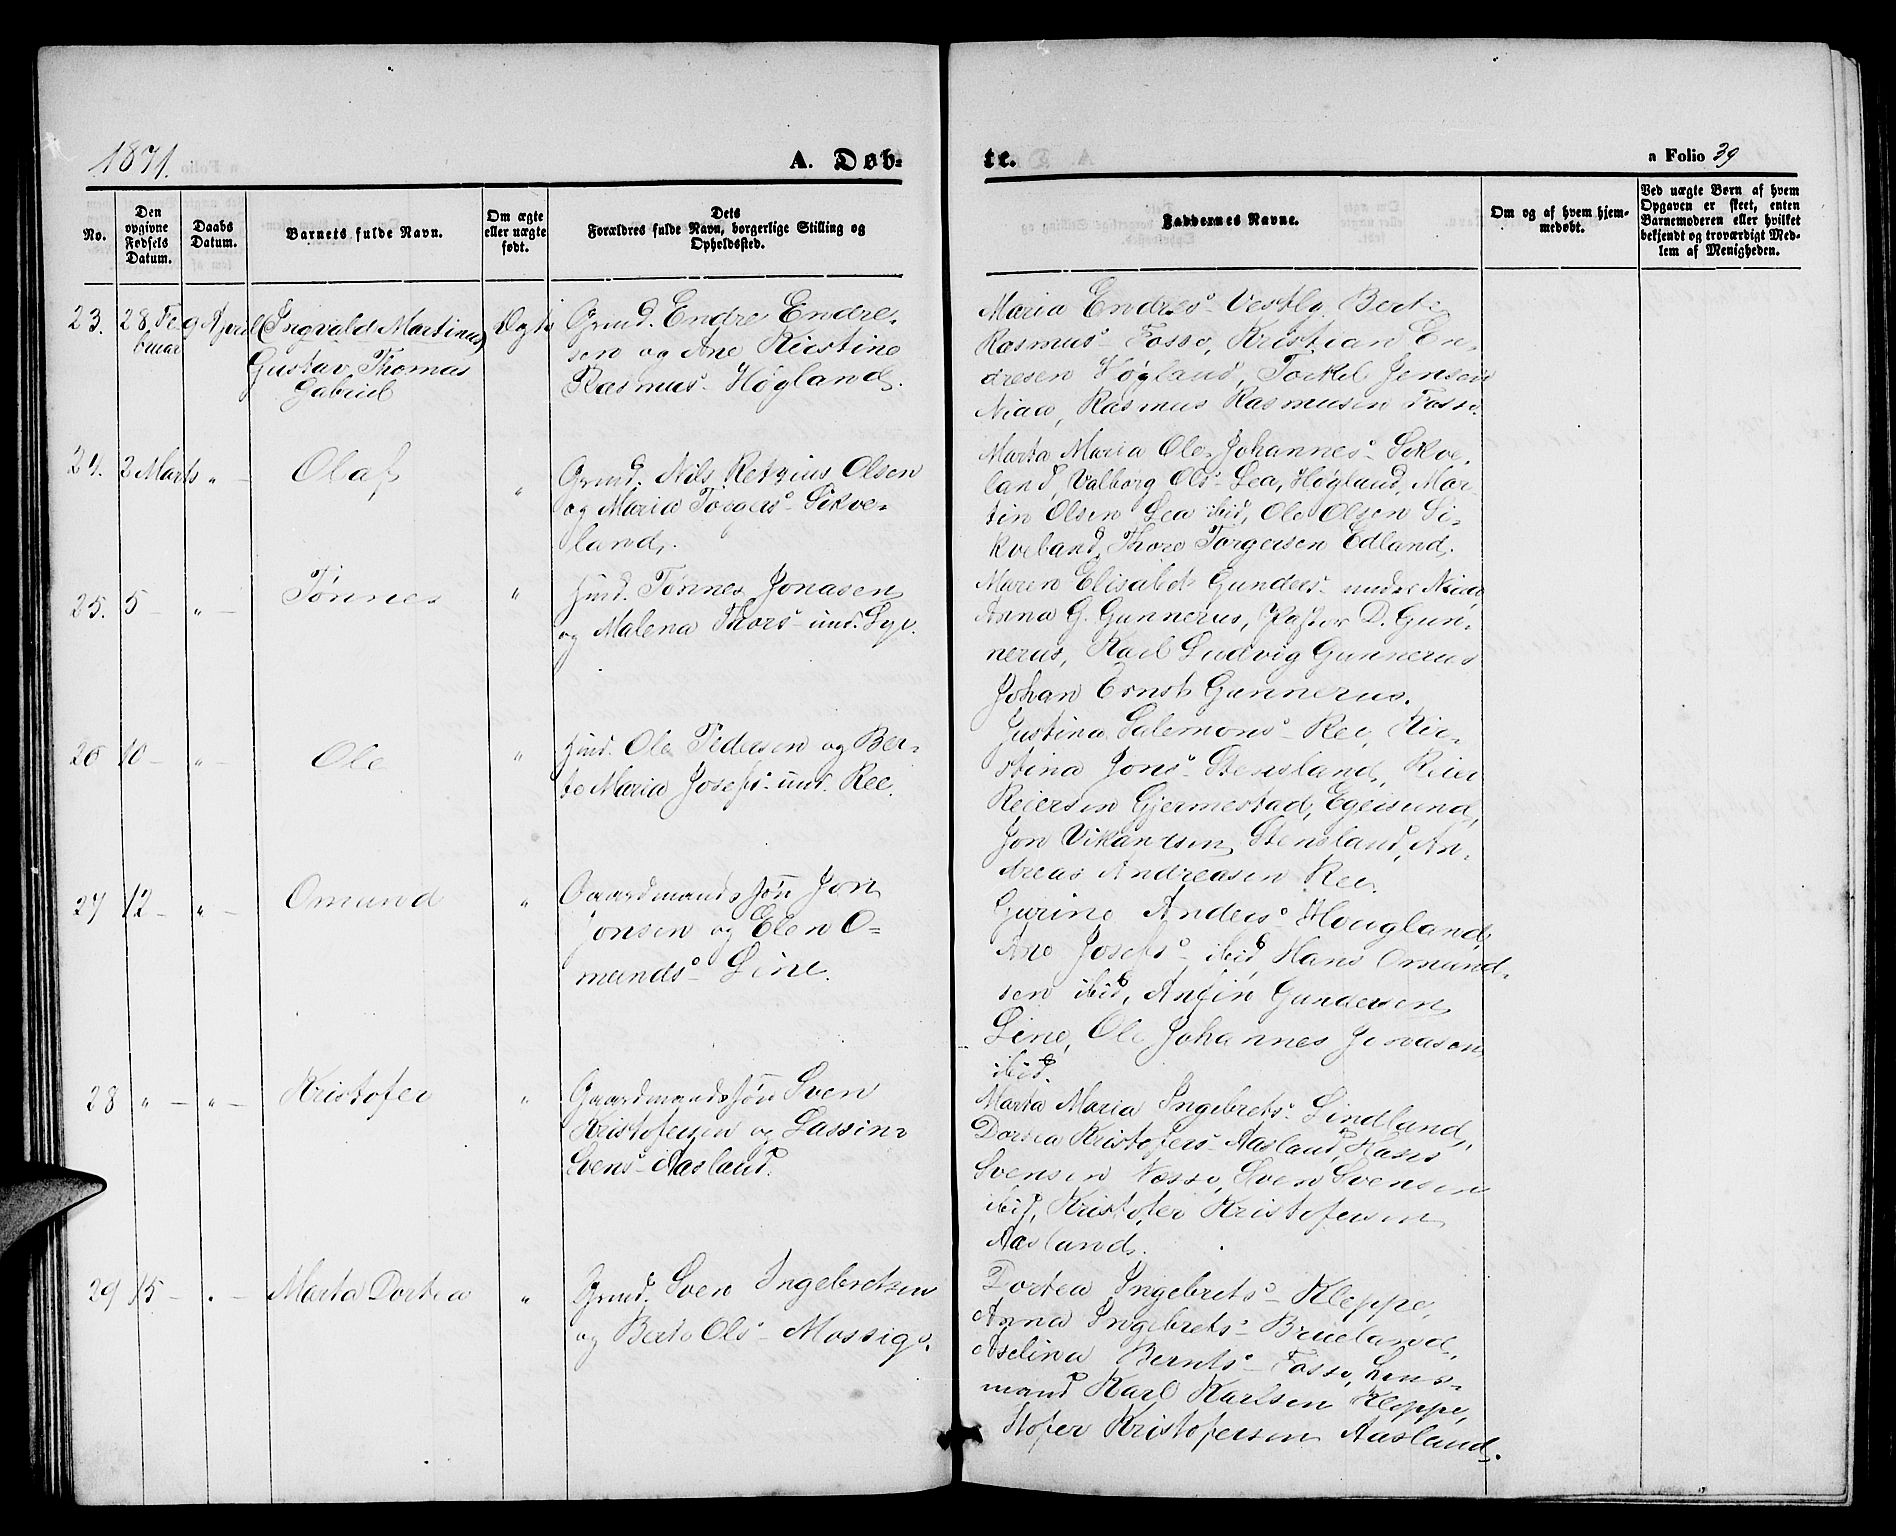 1871.
A. Døb-
te.
a Folio 39
No.
Den opgivne Fødsels Datum.
Daabs Datum.
Barnets fulde Navn.
Om ægte eller uægte født.
Dets Forældres fulde Navn, borgerlige Stilling og Opholdssted.
Faddernes Navne.
Om og af hvem hjemmedøbt.
Ved uægte Børn af hvem Opgaven er skeet, enten Barnemoderen eller hvilket bekjendt og troværdigt Medlem af Menigheden.
23. 28. Fe 9 April (Ingvald Martinus) Ægte Grmd. Endre Endre-
bruar Gustav Thomas sen og Ane Kirstine
Gabriel Rasmusº Høgland.
Maria Endresº Vestly, Berte
Rasmusº Fosse, Kristian En-
dresen Høgland, Torkel Jensen
Niaa, Rasmus Rasmusen Fosse
24. 3 Marts " — Olaf " Grmd. Nils Retzius Olsen
og Maria Torgersº Sikve-
land.
Marta Maria Ole Johannesº Sikve-
land, Valborg Olsº Lea, Høgland, Mar-
tin Olsen Lea ibid, Ole Olsen Si-
kveland, Thore Torgersen Edland.
25. 5 — " — Tønnes " Hmd. Tønnes Jonasen
og Malena Thorsº und. Lye.
Maren Elisabet Gundersº nedre Niaa
Anna G. Gunnerus, Pastor D. Gun-
nerus, Karl Ludvig Gunnerus
Johan Ernst Gunnerus.
26 10 — " — Ole " Hmd. Ole Pedersen og Ber-
te Maria Josefsº und. Ree.
Justina Salemonsº Ree, Kir-
stina Jonsº Stensland, Reier
Reiersen Gjermestad, Egersund,
Jon Vikandsen Stensland, An-
dreas Andreasen Ree.
27 12 — " — Omund " Gaardmandssøn Jon
Jonsen og Elen O-
mundsº Line.
Gurine Andersº Hougland,
Ane Josefsº ibid, Hans Omund-
sen ibid, Anfin Gundersen
Line, Ole Johannes Jonasen
ibid.
28 " — " — Kristofer " Gaardmandssøn Sven
Kristofersen og Lassine
Svensº Aasland.
Marta Maria Ingebretsº Lindland,
Dortea Kristofersº Aasland, Hans
Svensen Nesse, Sven Svensen
ibid, Kristofer Kristofersen
Aasland.
29 15 — " — Marta Dortea " Grmd. Sven Ingebretsen
og Berte Olsº Mossige.
Dortea Ingebretsº Kleppe,
Anna Ingebretsº Brueland,
Aselina Berntsº Fosse, Lens-
mand Karl Karlsen Kleppe,
Stofer Kristofersen Aasland.